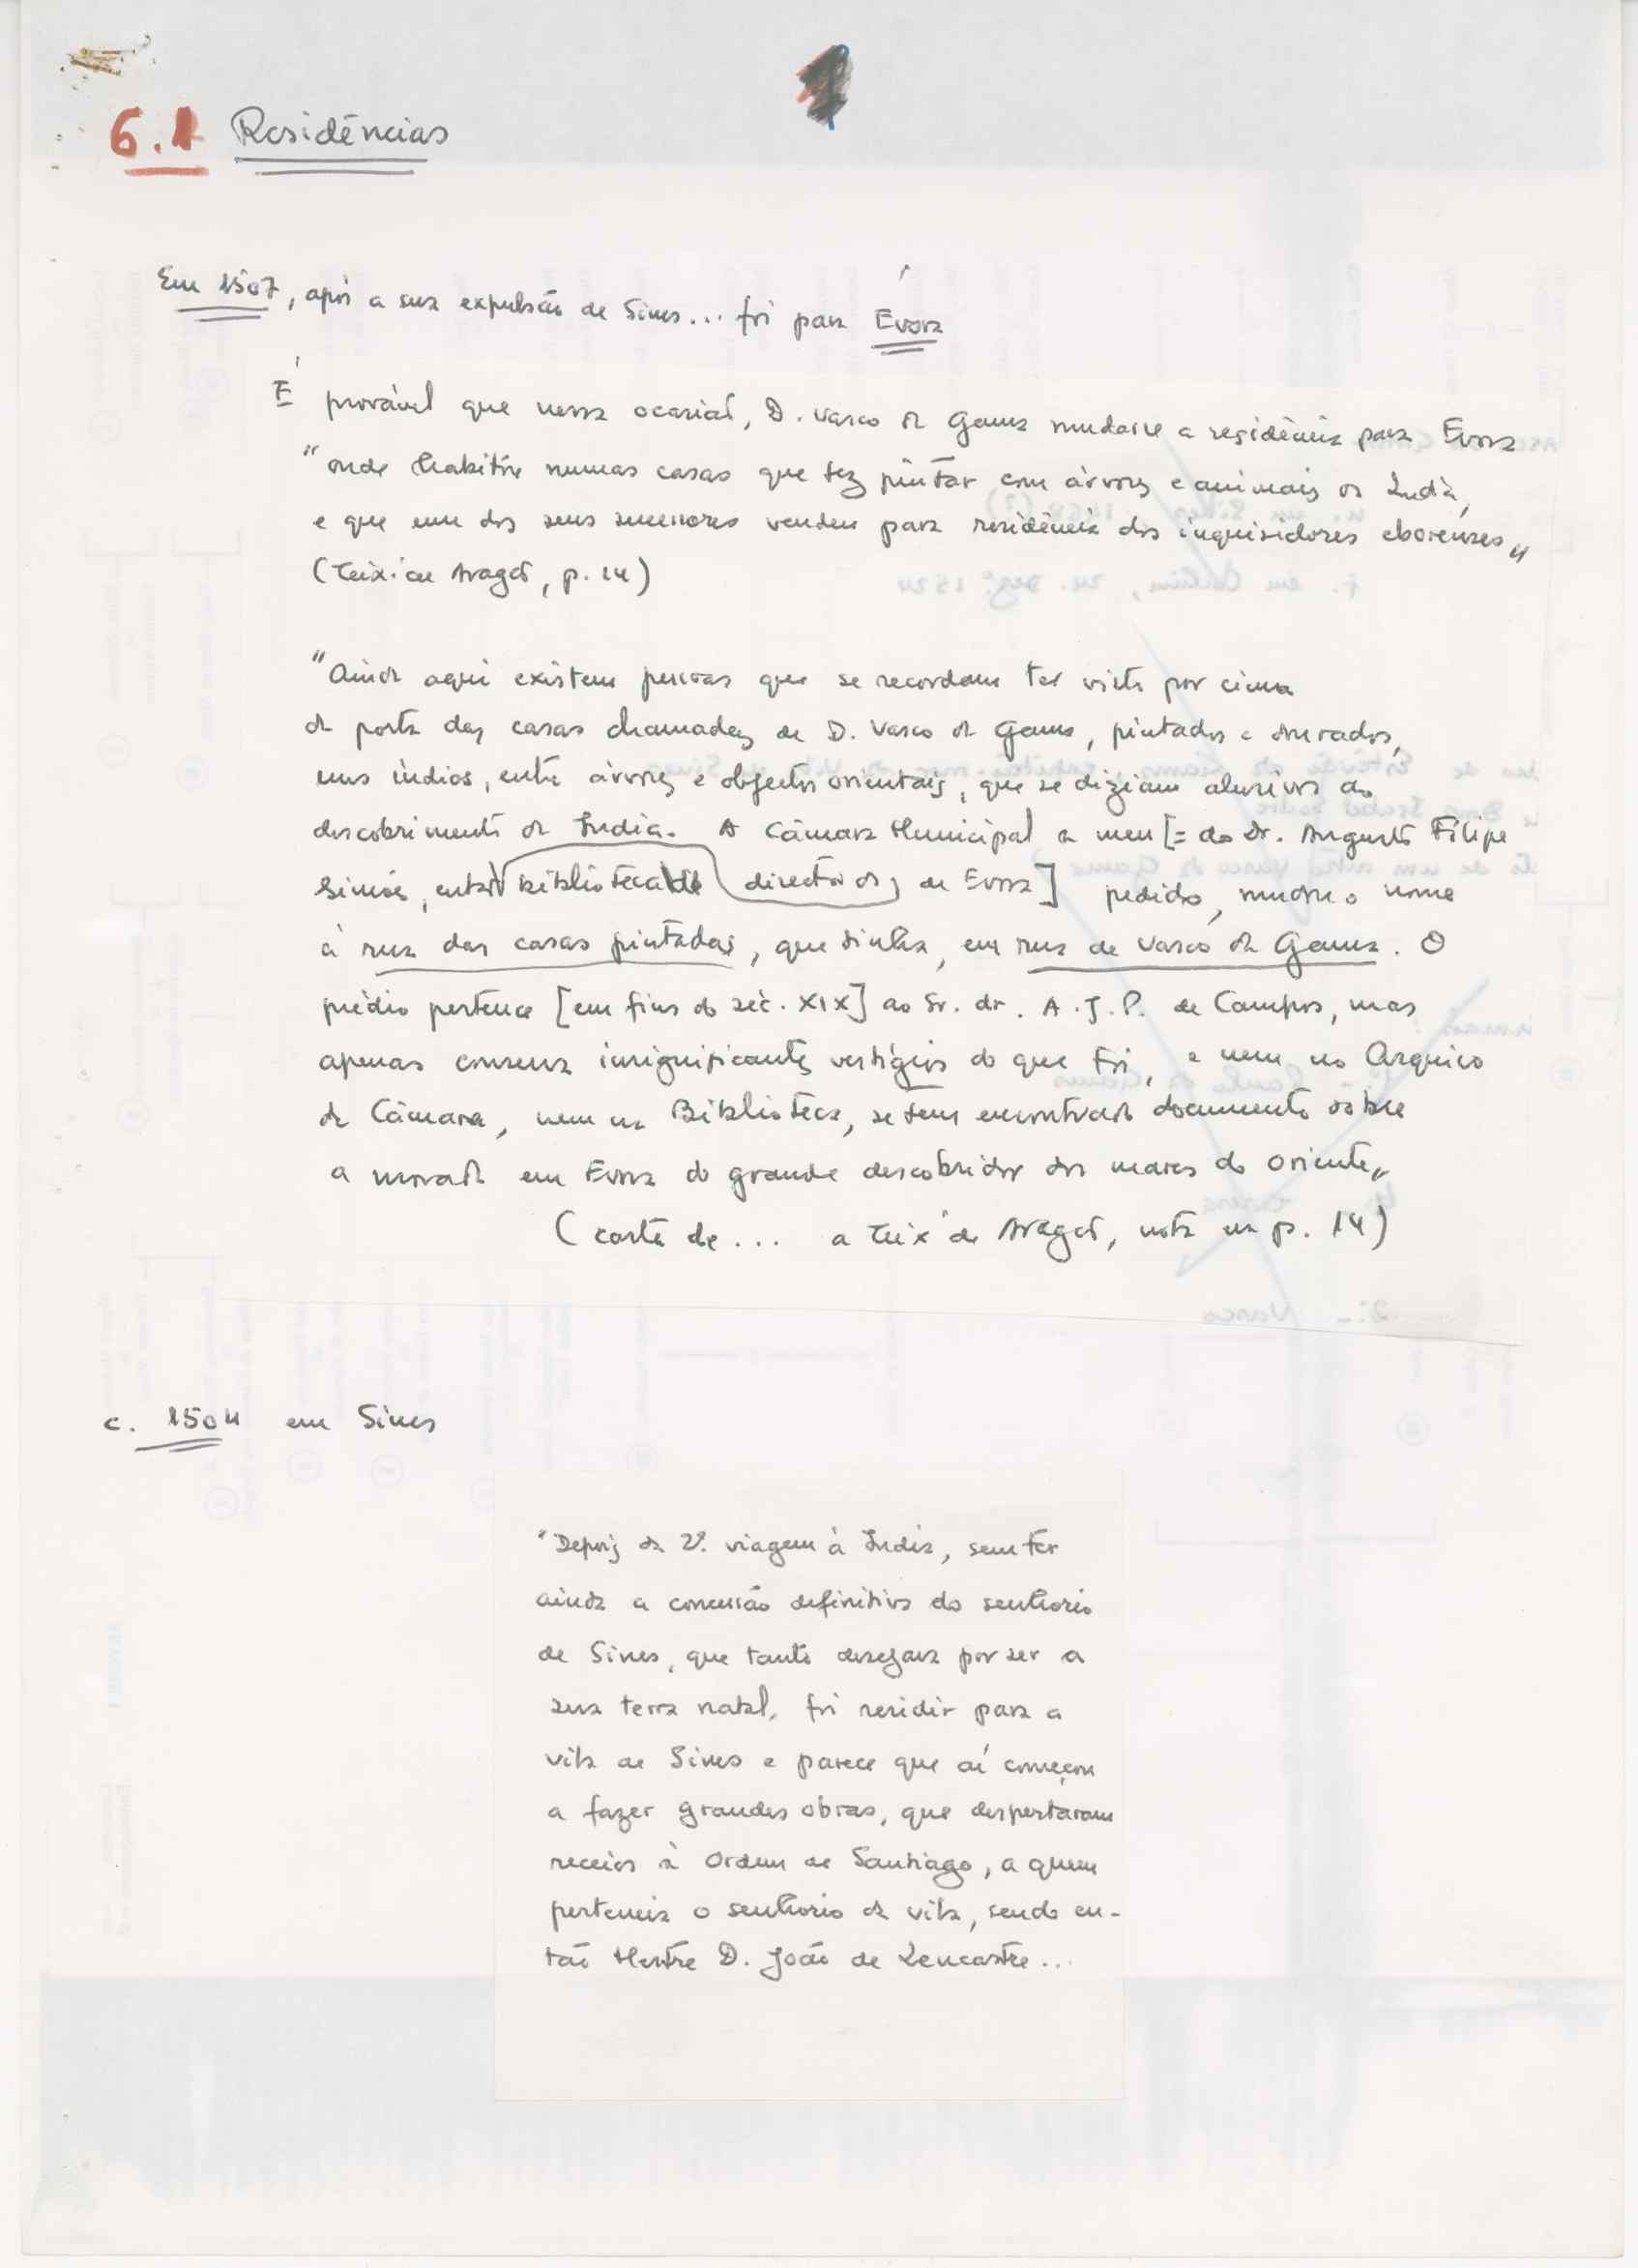 6.1 Residências
Em 1507, após a sua expulsão de Sines... foi para Évora
É provável que nessa ocasião, D. Vasco da Gama mudasse a residência para Évora
"onde habitou numas casas que fez pintar com árvores e animais da India,
e que um dos seus sucessores vendeu para residência dos inquisidores eborenses"
(Teixª de Aragão, p. 14)
"Ainda aqui existem pessoas que se recordam ter visto por cima
da porta das casas chamadas de D. Vasco da Gama, pintados e dourados,
uns índios, entre árvores e objectos orientais, que se diziam alusivos ao
descobrimento da India. A Câmara Municipal a meu [= do Dr. Augusto Filipe
Simões, então director da biblioteca de Evora] pedido, mudou o nome
à rua das casas pintadas, que tinha, em rua de Vasco da Gama. O
prédio pertence [em fins do séc. XIX] ao Sr. dr. A. J. P. de Campos, mas
apenas conserva insignificantes vestígios do que foi, e nem no Arquivo
da Câmara, nem na Biblioteca, se tem encontrado documento sobre
a morada em Evora do grande descobridor dos mares do Oriente"
(carta de ... a Teixª de Aragão, nota na p. 14)
c. 1504 em Sines
"Depois da 2ª. viagem à India, sem ter
ainda a concessão definitiva do senhorio
de Sines, que tanto desejava por ser a
sua terra natal, foi residir para a
vila de Sines e parece que aí começou
a fazer grandes obras, que despertaram
receios à Ordem de Santiago, a quem
pertencia o senhorio da vila, sendo en-
tão Mestre D. João de Lencastre...